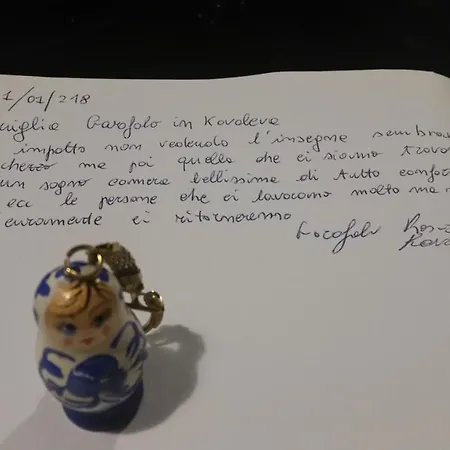 1/01/218
miglia Garofolo in Kovaleva
impatto non vedendo l'insegne sembrav
cherzo ma poi quello che ci siamo trova
un sogno camera bellissima di tutto confor
le persone che ci lavorano molto
curamente ci ritorneremo
Garofolo